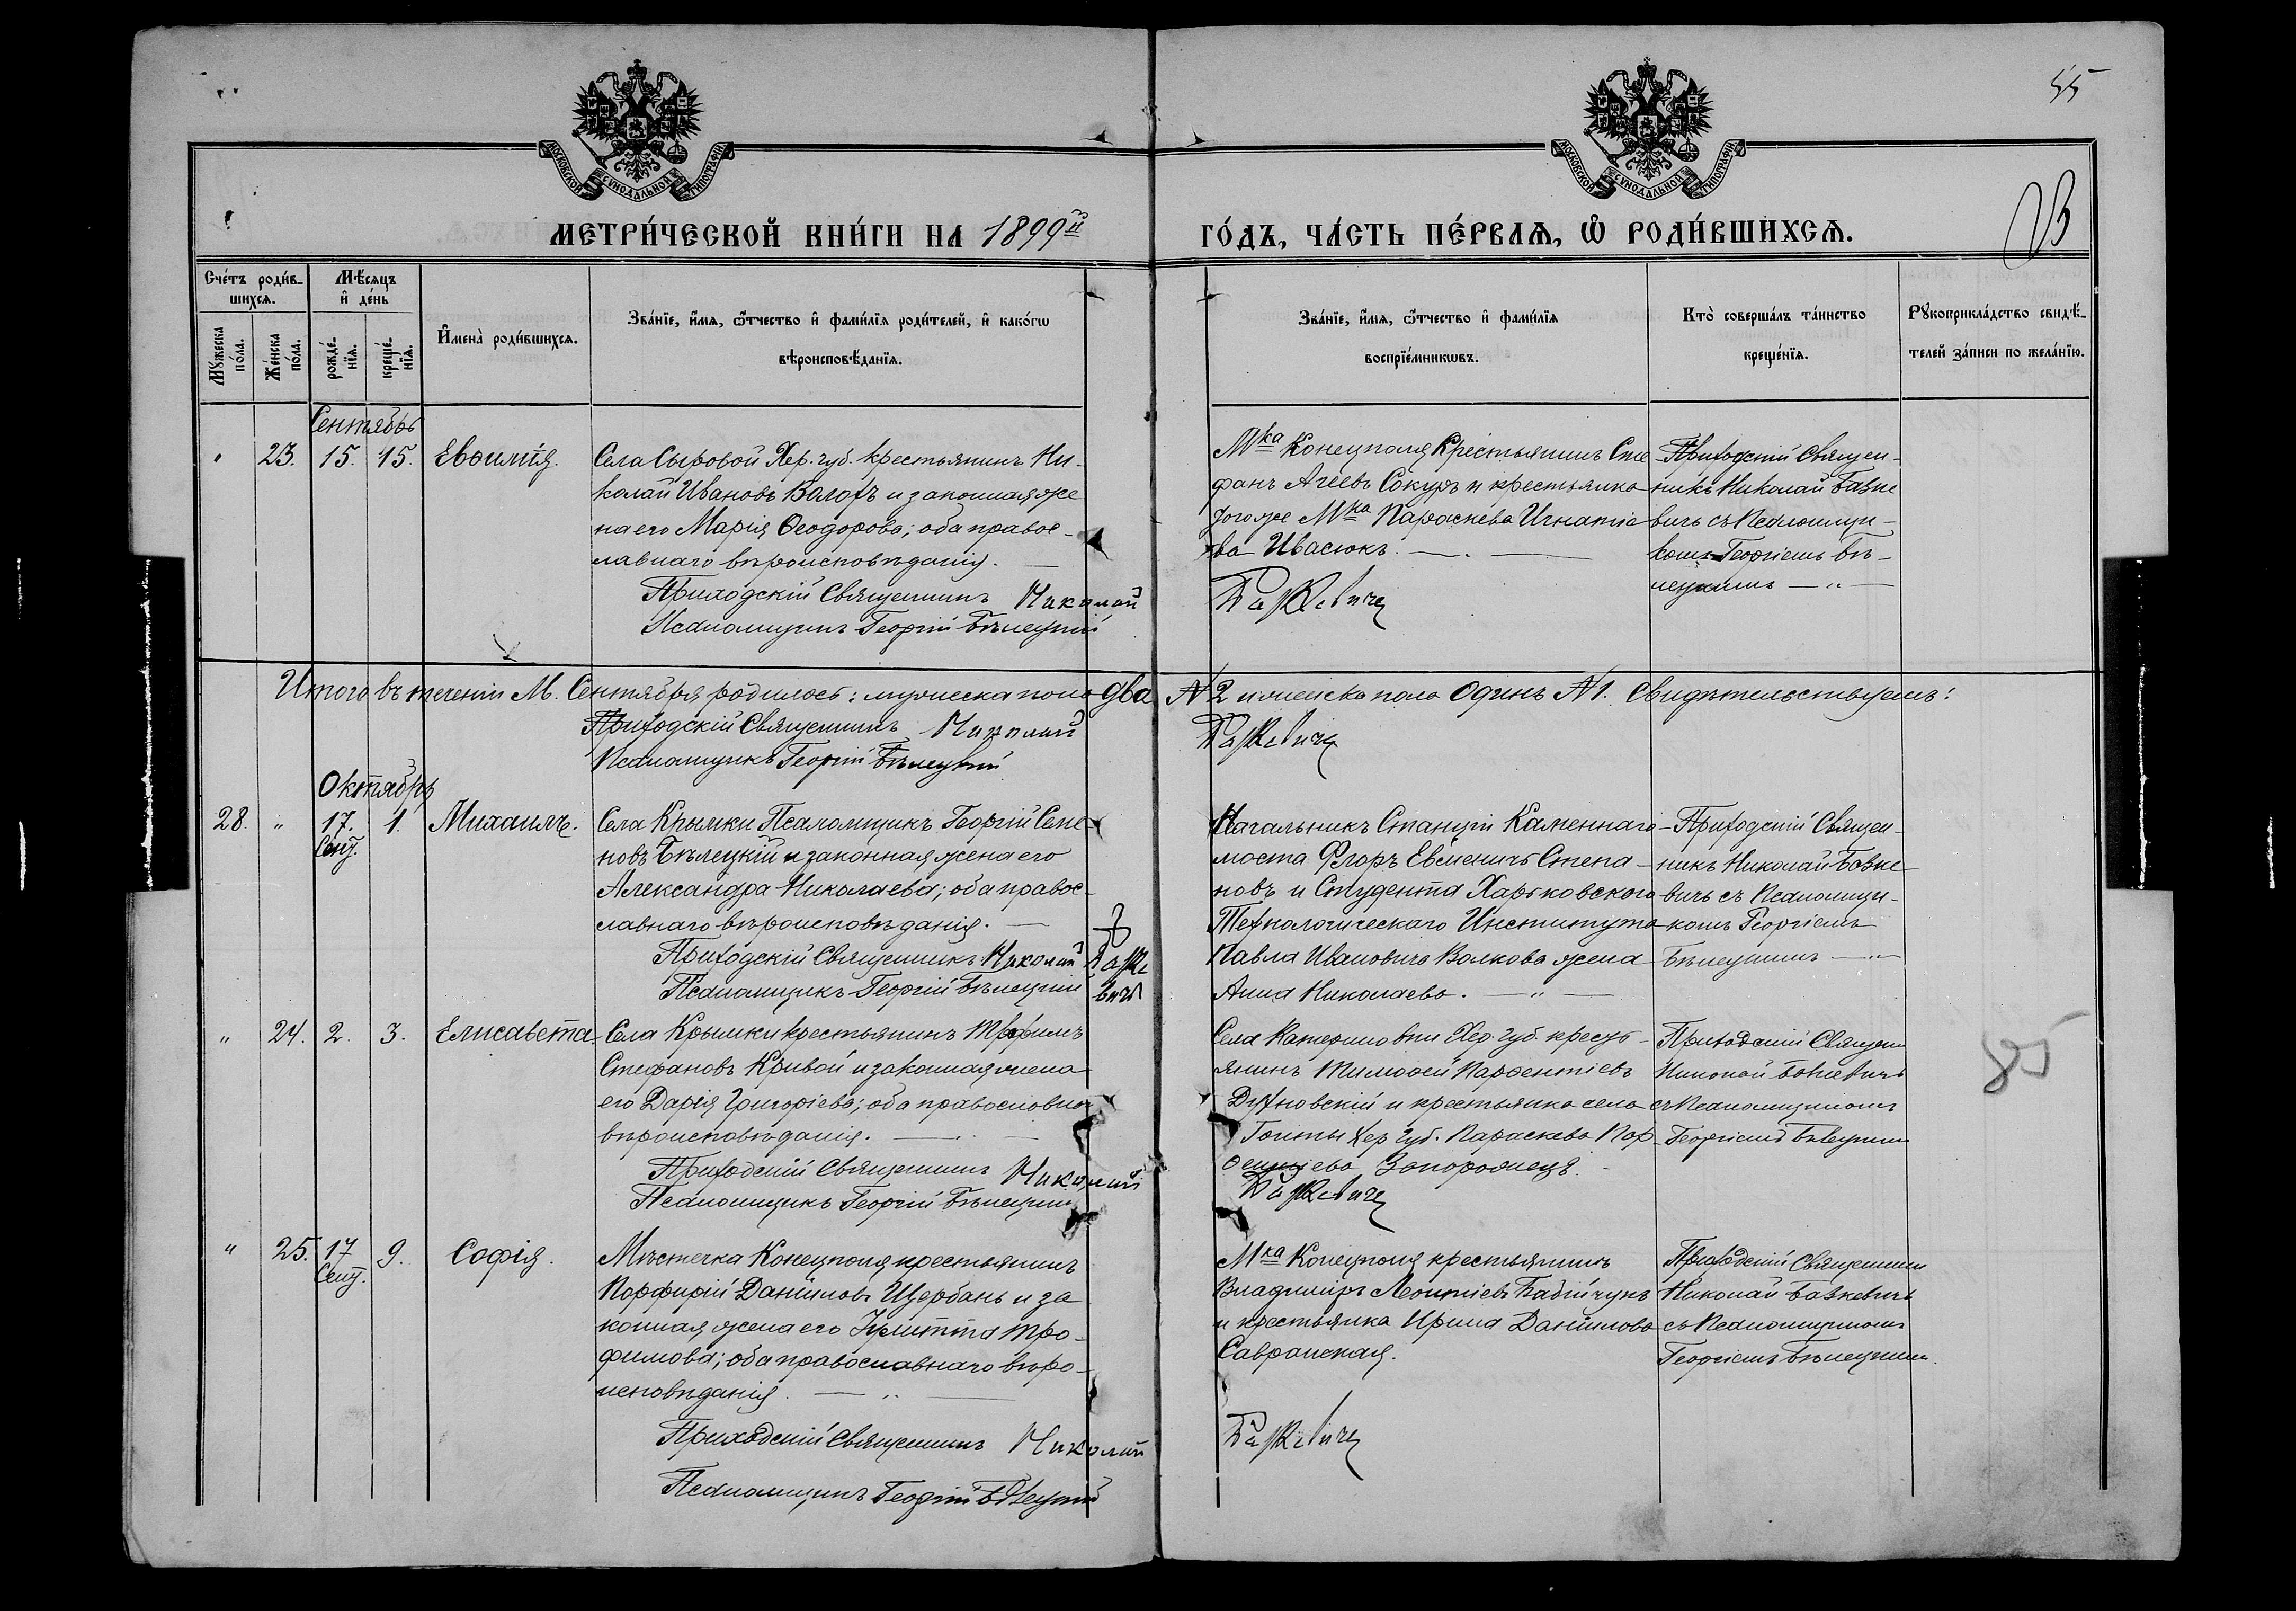 55
МОСКОВСКОЙ СѴНОДАЛЬНОЙ ТИПОГРАФІИ
МОСКОВСКОЙ СѴНОДАЛЬНОЙ ТИПОГРАФІИ
МЕТРИ́ЧЕСКОЙ КНИ́ГИ НА 1899й
ГО́ДЪ, ЧА́СТЬ ПЕ́РВАѦ, Ѡ РОДИ́ВШИХСѦ.
Сче́тъ роди́в-
шихсѧ.
Мꙋ́жеска по́ла.
Же́нска по́ла.
Мѣ́сѧцъ
и҆ де́нь
рожде́-нїѧ.
креще́-нїѧ.
И҆мена̀ роди́вшихсѧ.
Зва́нїе, и҆́мѧ, ѻ҆́тчество и҆ фами́лїѧ роди́телей, и҆ како́гѡ
вѣроисповѣ́данїѧ.
Зва́нїе, и҆́мѧ, ѻ҆́тчество и҆ фами́лїѧ
воспрїе́мникѡвъ.
Кто̀ соверша́лъ та́инство
креще́нїѧ.
Рꙋкоприкла́дство свидѣ́-
телей за́писи по жела́нїю.
Сентябрь
" 23. 15. 15. Евѳимія.
Села Сыровой Хер. губ. крестьянинъ Ни-
колай Ивановъ и законная же
на его Марія Ѳеодорова; оба правос-
лавнаго вѣроисповѣданія. —
Приходскій Священникъ Николай
Псаломщикъ Георгій Бѣлецкій
Мка Конецполя Крестьянинъ Сте
фанъ Агеевъ Сокуръ и крестьянка
того же Мка Параскева Игнатіе
ва Ивасюкъ. — . —
Базкевичъ
Приходскій Священ-
никъ Николай Базке
вичъ съ Псаломщи-
комъ Георгіемъ Бѣ-
лецкимъ — " —
Итого въ теченіи М. Сентября родилось: мужеска пола два № 2 и женска пола одинъ № 1. Свидѣтельствуемъ:
Приходскій Священникъ Николай Базкевичъ
Псаломщикъ Георгій Бѣлецкій
Октябрь
28. " 17. Сент. 1. Михаилъ.
Села Крымки Псаломщикъ Георгій Семе-
новъ Бѣлецкій и законная жена его
Александра Николаева; оба правос-
лавнаго вѣроисповѣданія. —
Приходскій Священникъ Николай Базкевичъ
Псаломщикъ Георгій Бѣлецкій
Начальникъ Станціи Каменнаго
моста Егоръ Евменичъ Степа-
новъ и Студента Харьковскаго
Технологическаго Института
Павла Ивановича Волкова жена
Анна Николаева. — " —
Приходскій Священ-
никъ Николай Базке
вичъ съ Псаломщи-
комъ Георгіемъ
Бѣлецкимъ — " —
" 24. 2. 3. Елисавета
Села Крымки крестьянинъ Трофимъ
Стефановъ Кривой и законная жена
его Дарія Григоріева; оба православна
вѣроисповѣданія. —
Приходскій Священникъ Николай
Псаломщикъ Георгій Бѣлецкій
Села Катериновки Хер. губ. кресть-
янинъ Тимоѳей Парѳентіевъ
и крестьянка села
Голты Хер губ. Параскева Пар-
ѳентіева Запорожецъ.
Базкевичъ
Приходскій Священ
Николай Базкевичъ
съ Псаломщикомъ
Георгіемъ Бѣлецким
85
" 25. 17 Сент. 9. Софія.
Мѣстечка Конецполя крестьянинъ
Порфирій Даніиловъ Щербань и за
конная жена его Іулитта Тро-
фимова; оба православнаго вѣро-
исповѣданія. — " —
Приходскій Священникъ Николай
Псаломщикъ Георгій Бѣлецкій
Мка Конецполя крестьянинъ
Владиміръ Леонтіевъ Бабійчукъ
и крестьянка Ирина Даніилова
Савранская.
Базкевичъ
Приходскій Священник
Николай Базкевичъ
съ Псаломщикомъ
Георгіемъ Бѣлецким.